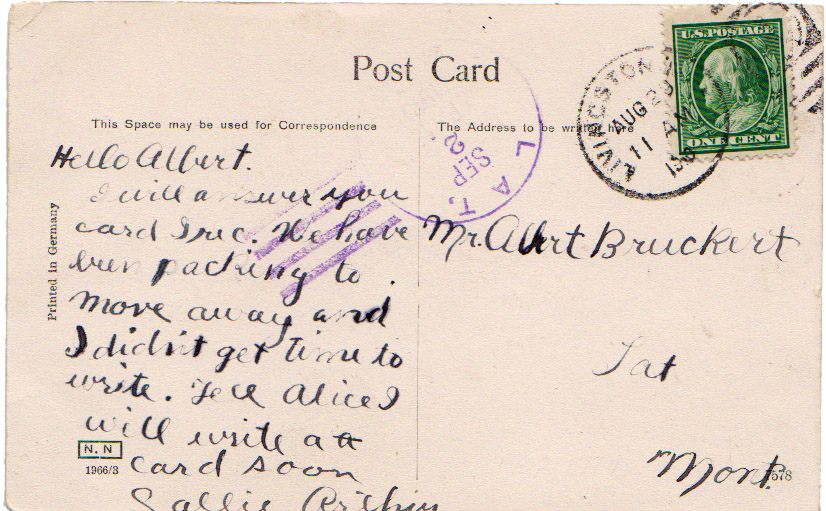 Post Card
This Space may be used for Correspondence
The Address to be written here
U.S. POSTAGE
ONE CENT
LIVINGSTON
AUG
11 AM
LAT.
SEP
2
Hello Albert.
I will answer you
card I rec. We have
been packing to
move away and
I didn't get time to
write. Tell Alice I
will write a
card soon
Sallie
Mr. Albert Bruckert
Lat
Mont.
Printed in Germany
N. N
1966/3
578